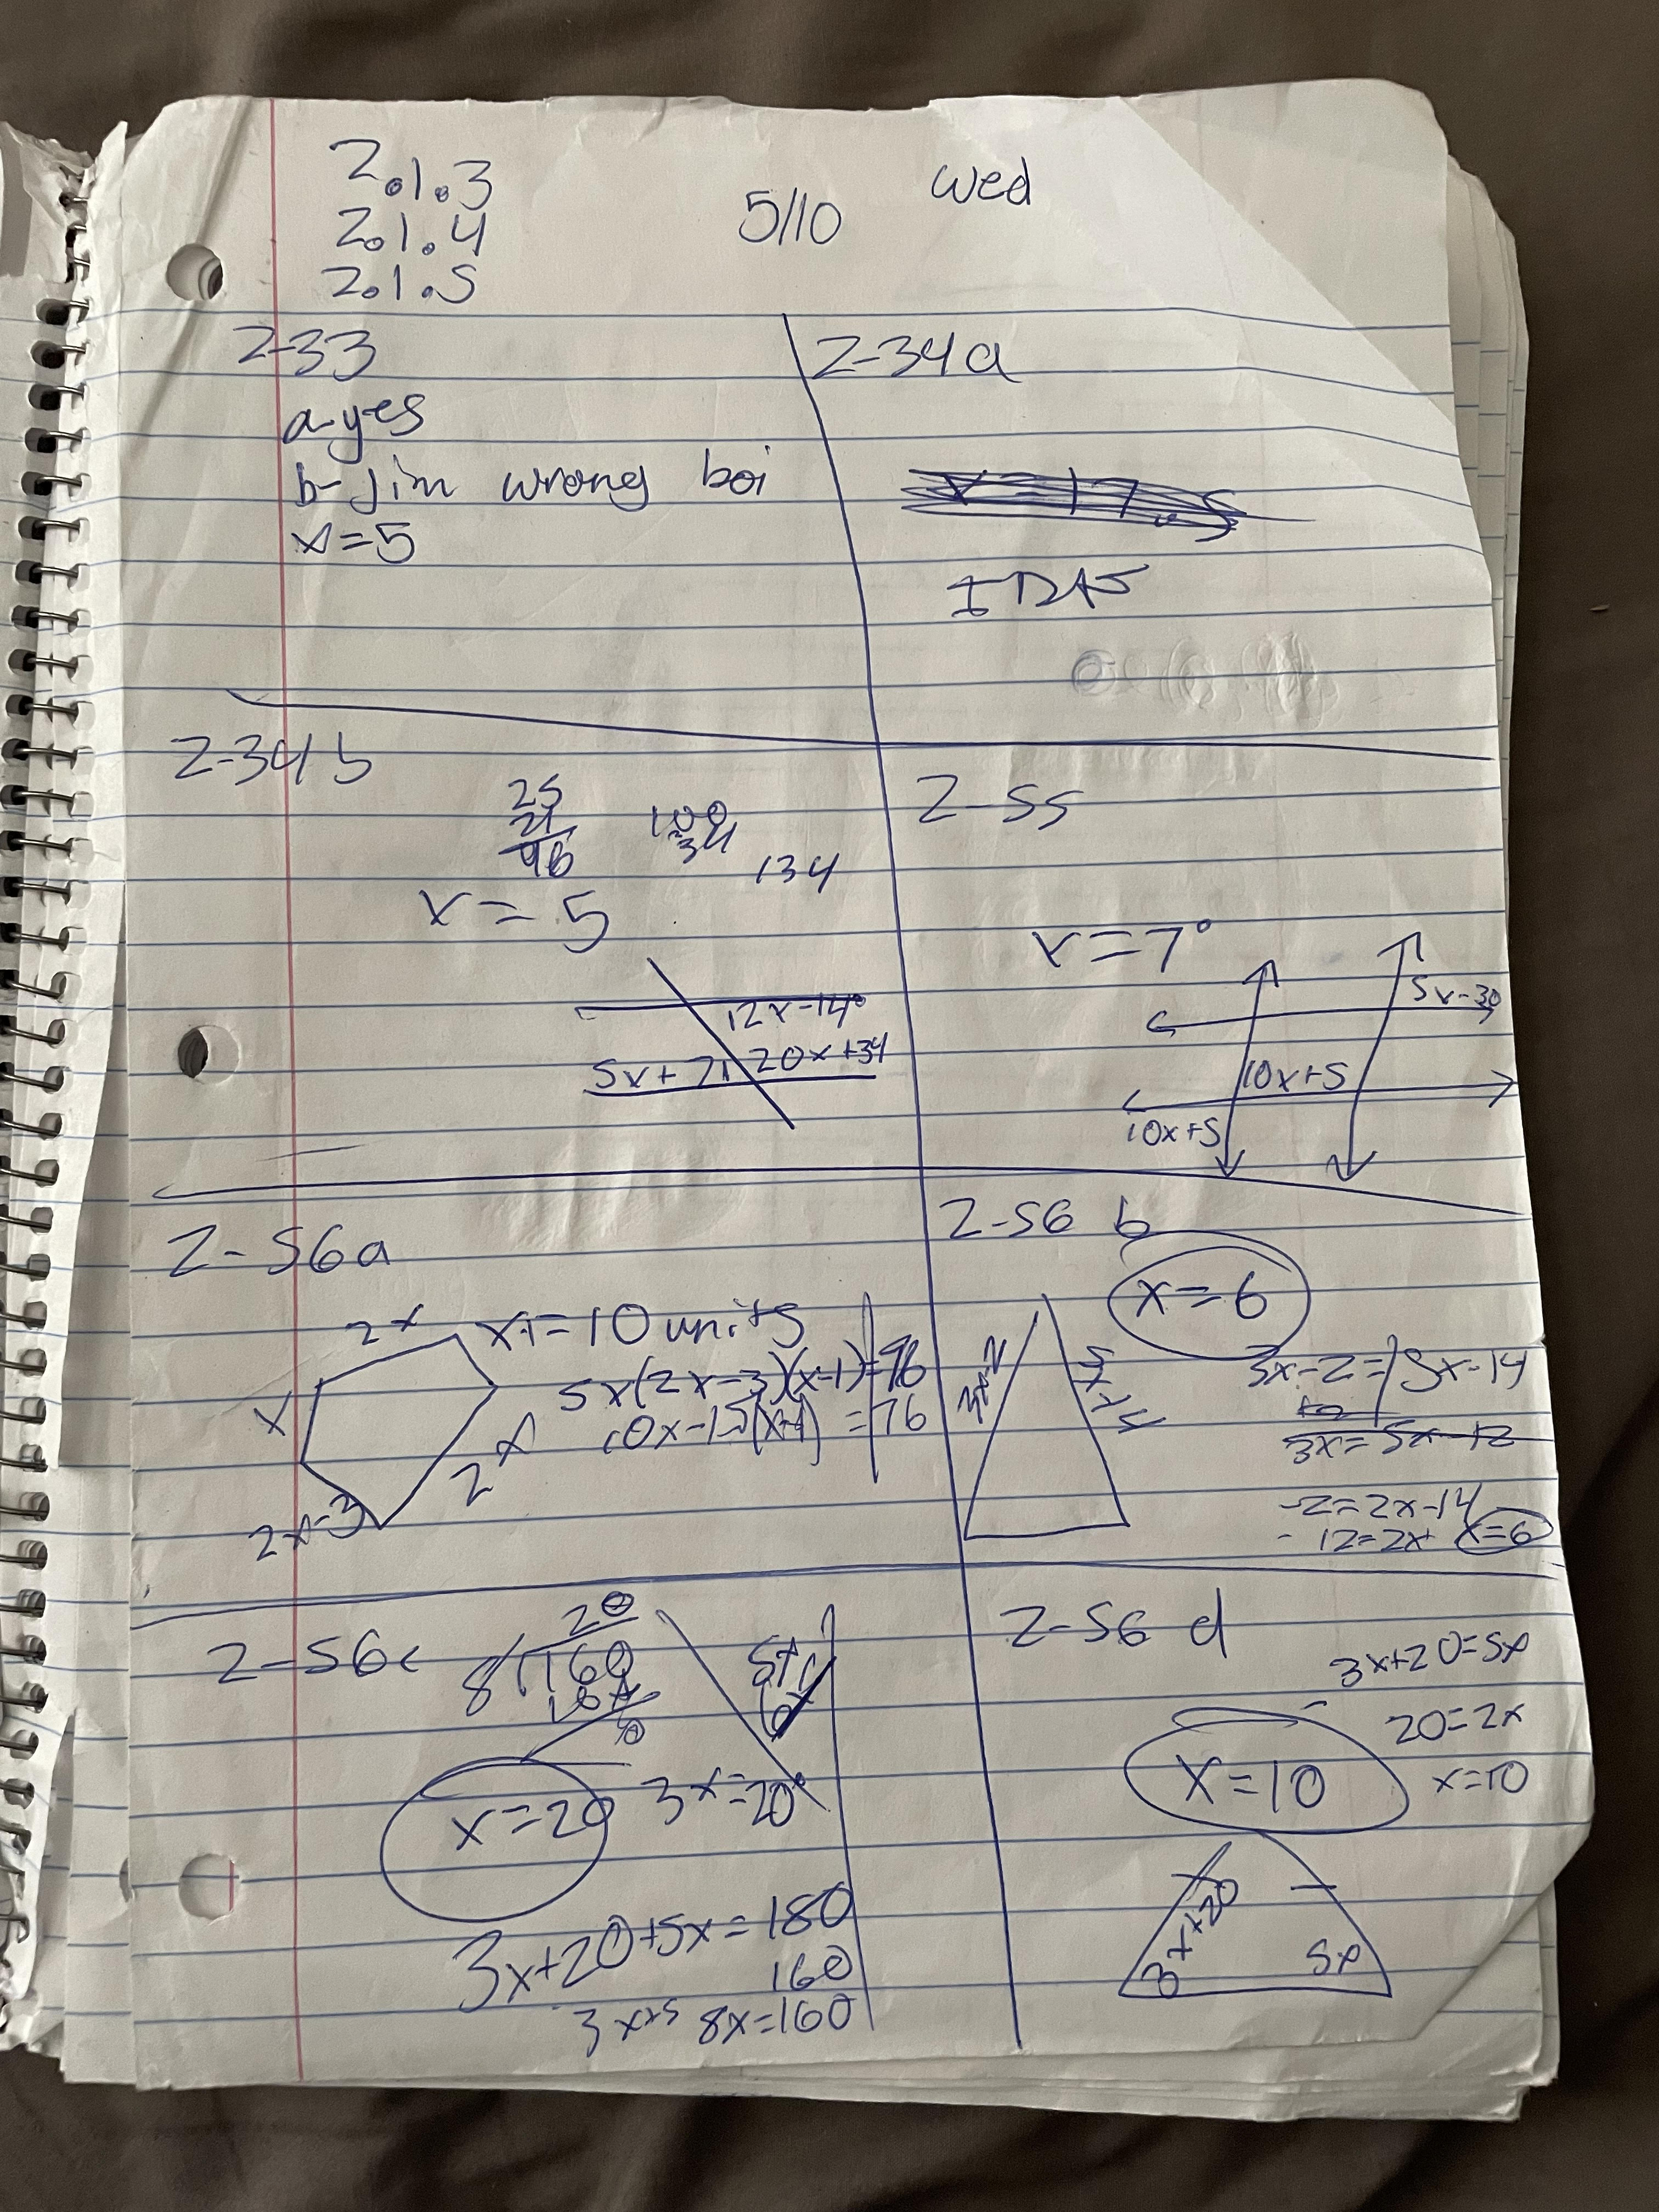 2.1.3
2.1.4
2.1.5
5/10
Wed
2-33
a-yes
b- Jim wrong boi
x=5
2-34a
x=17.5
IDK
2-34 b
25
21
46
100
34
134
x = 5
12x-14°
5x+71
20x+34
2-55
x=7°
5x-30
10x+5
10x+5
2-56a
2x
x
2x-3
2x
=10 units
5x(2x-3)(x-1)=76
10x-15(x-1) =76
2-56 b
x=6
3x-2=5x-14
+2
3x=5x-12
-2=2x-14
12=2x
x=6
2-56c
20
8 160
x=20
3x=20°
3x+20+5x=180
160
8x=160
2-56 d
3x+20=5x
20=2x
x=10
x=10
3x+20
5x